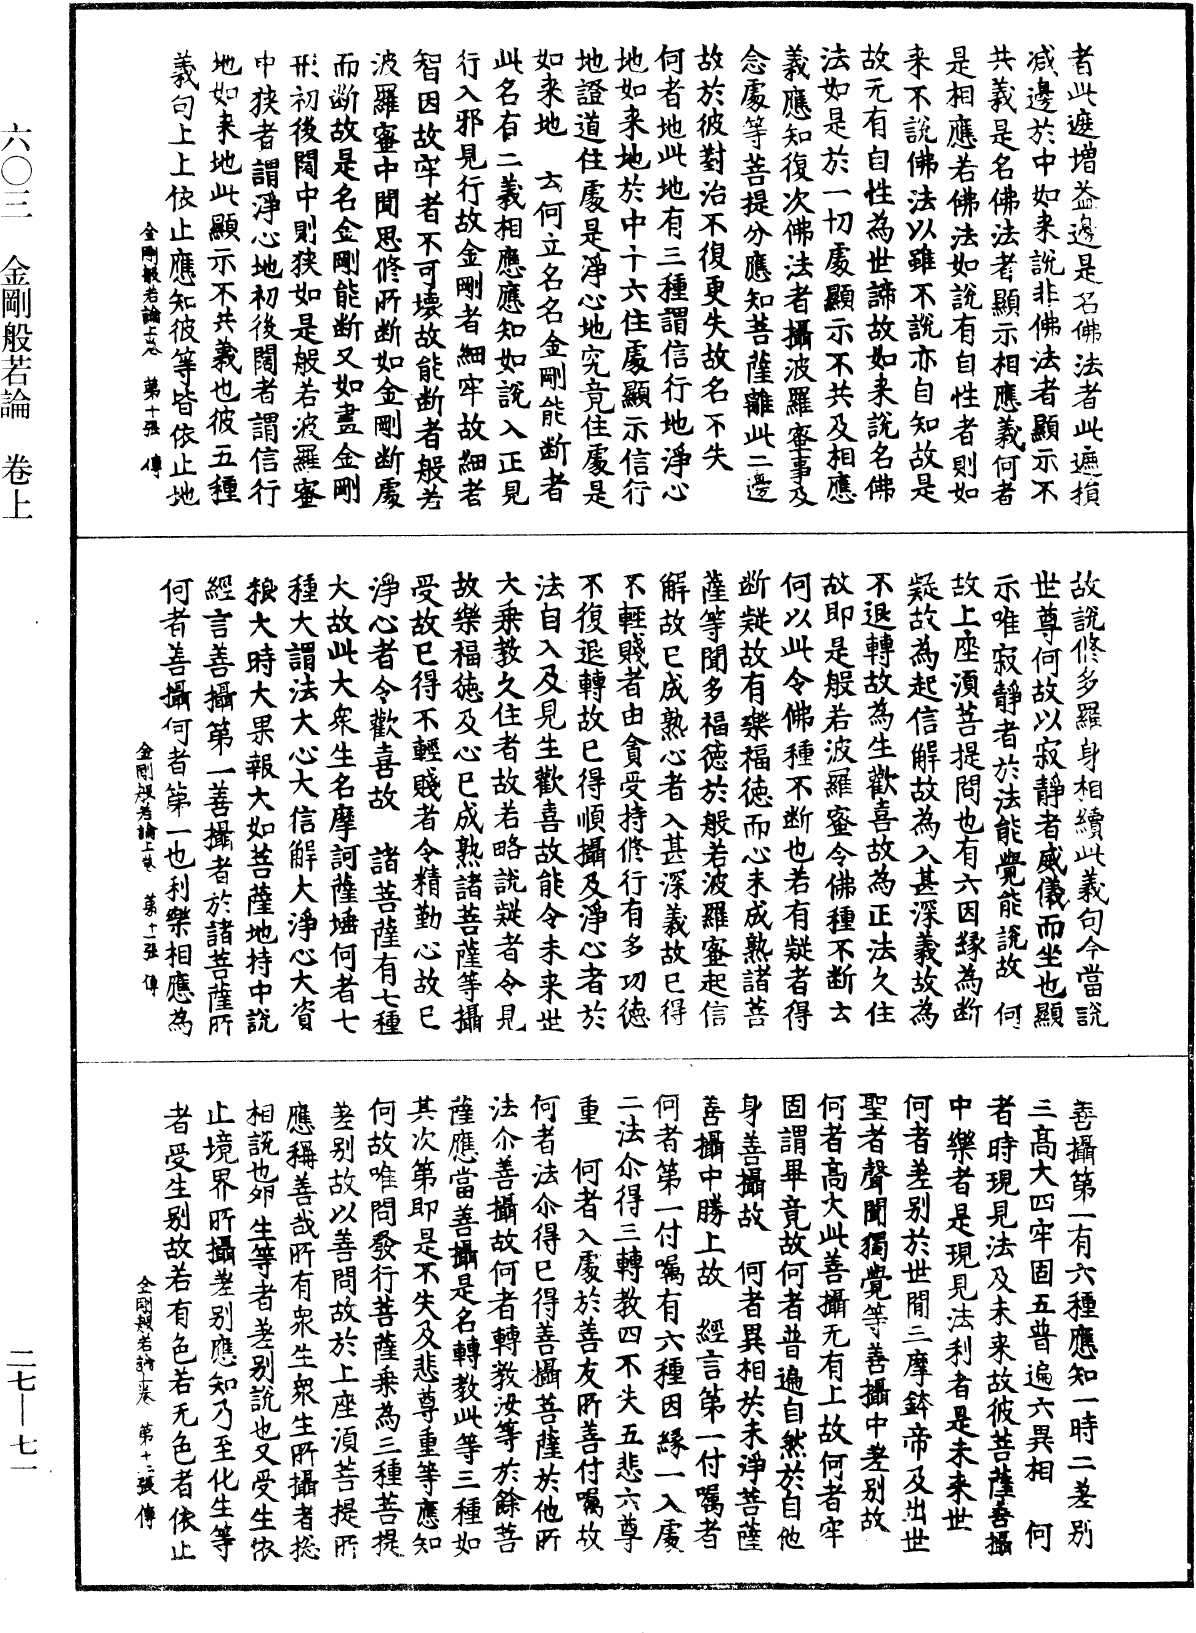 者此遮增益邊是名佛法者此遮損
减邊於中如来說非佛法者顯示不
共義是名佛法者顯示相應義何者
是相應若佛法如說有自性者則如
来不說佛法以雖不說亦自知故是
故无有自性為世諦故如来說名佛
法如是於一切處顯示不共及相應
義應知復次佛法者攝波羅蜜事及
念處等菩提分應知菩薩離此二邊
故於彼對治不復更失故名不失
何者地此地有三種謂信行地淨心
地如来地於中十六住處顯示信行
地證道住處是淨心地究竟住處是
如来地　云何立名名金剛能断者
此名有二義相應應知如說入正見
行入邪見行故金剛者細牢故細者
智因故牢者不可壞故能断者般若
波羅蜜中聞思修所断如金剛断處
而断故是名金剛能断又如畫金剛
形初後闊中則狹如是般若波羅蜜
中狹者謂淨心地初後闊者謂信行
地如来地此顯示不共義也彼五種
義句上上依止應知彼等皆依止地
金剛般若論上卷　第十張　傳
故說修多羅身相續此義句今當說
世尊何故以寂靜者威儀而坐也顯
示唯寂靜者於法能覺能說故　何
故上座須菩提問也有六因緣為断
疑故為起信解故為入甚深義故為
不退轉故為生歡喜故為正法久住
故即是般若波羅蜜令佛種不断云
何以此令佛種不断也若有疑者得
断疑故有樂福徳而心未成熟諸菩
薩等聞多福徳於般若波羅蜜起信
解故已成熟心者入甚深義故已得
不輕賤者由貪受持修行有多功徳
不復退轉故已得順攝及淨心者於
法自入及見生歡喜故能令未来世
大乗教久住者故若略說疑者令見
故樂福徳及心已成熟諸菩薩等攝
受故已得不輕賤者令精勤心故已
淨心者令歡喜故　諸菩薩有七種
大故此大衆生名摩訶薩埵何者七
種大謂法大心大信解大淨心大資
粮大時大果報大如菩薩地持中說
經言善攝第一善攝者於諸菩薩所
何者善攝何者第一也利樂相應為
金剛般若論上卷　第十一張　傳
善攝第一有六種應知一時二差别
三高大四牢固五普遍六異相　何
者時現見法及未来故彼菩薩善攝
中樂者是現見法利者是未来世
何者差别於世間三摩鉢帝及出世
聖者聲聞獨覺等善攝中差别故
何者高大此善攝无有上故何者牢
固謂畢竟故何者普遍自然於自他
身善攝故　何者異相於未淨菩薩
善攝中勝上故　經言第一付嘱者
何者第一付嘱有六種因緣一入處
二法尒得三轉教四不失五悲六尊
重　何者入處於善友所善付嘱故
何者法尒得已得善攝菩薩於他所
法尒善攝故何者轉教汝等於餘菩
薩應當善攝是名轉教此等三種如
其次第即是不失及悲尊重等應知
何故唯問發行菩薩乗為三種菩提
差别故以善問故於上座須菩提所
應稱善哉所有衆生衆生所攝者捴
相說也卵生等者差别說也又受生依
止境界所攝差别應知乃至化生等
者受生别故若有色若无色者依止
金剛般若論上卷　第十二張　傳
六〇三　金剛般若論　卷上
二七—七一